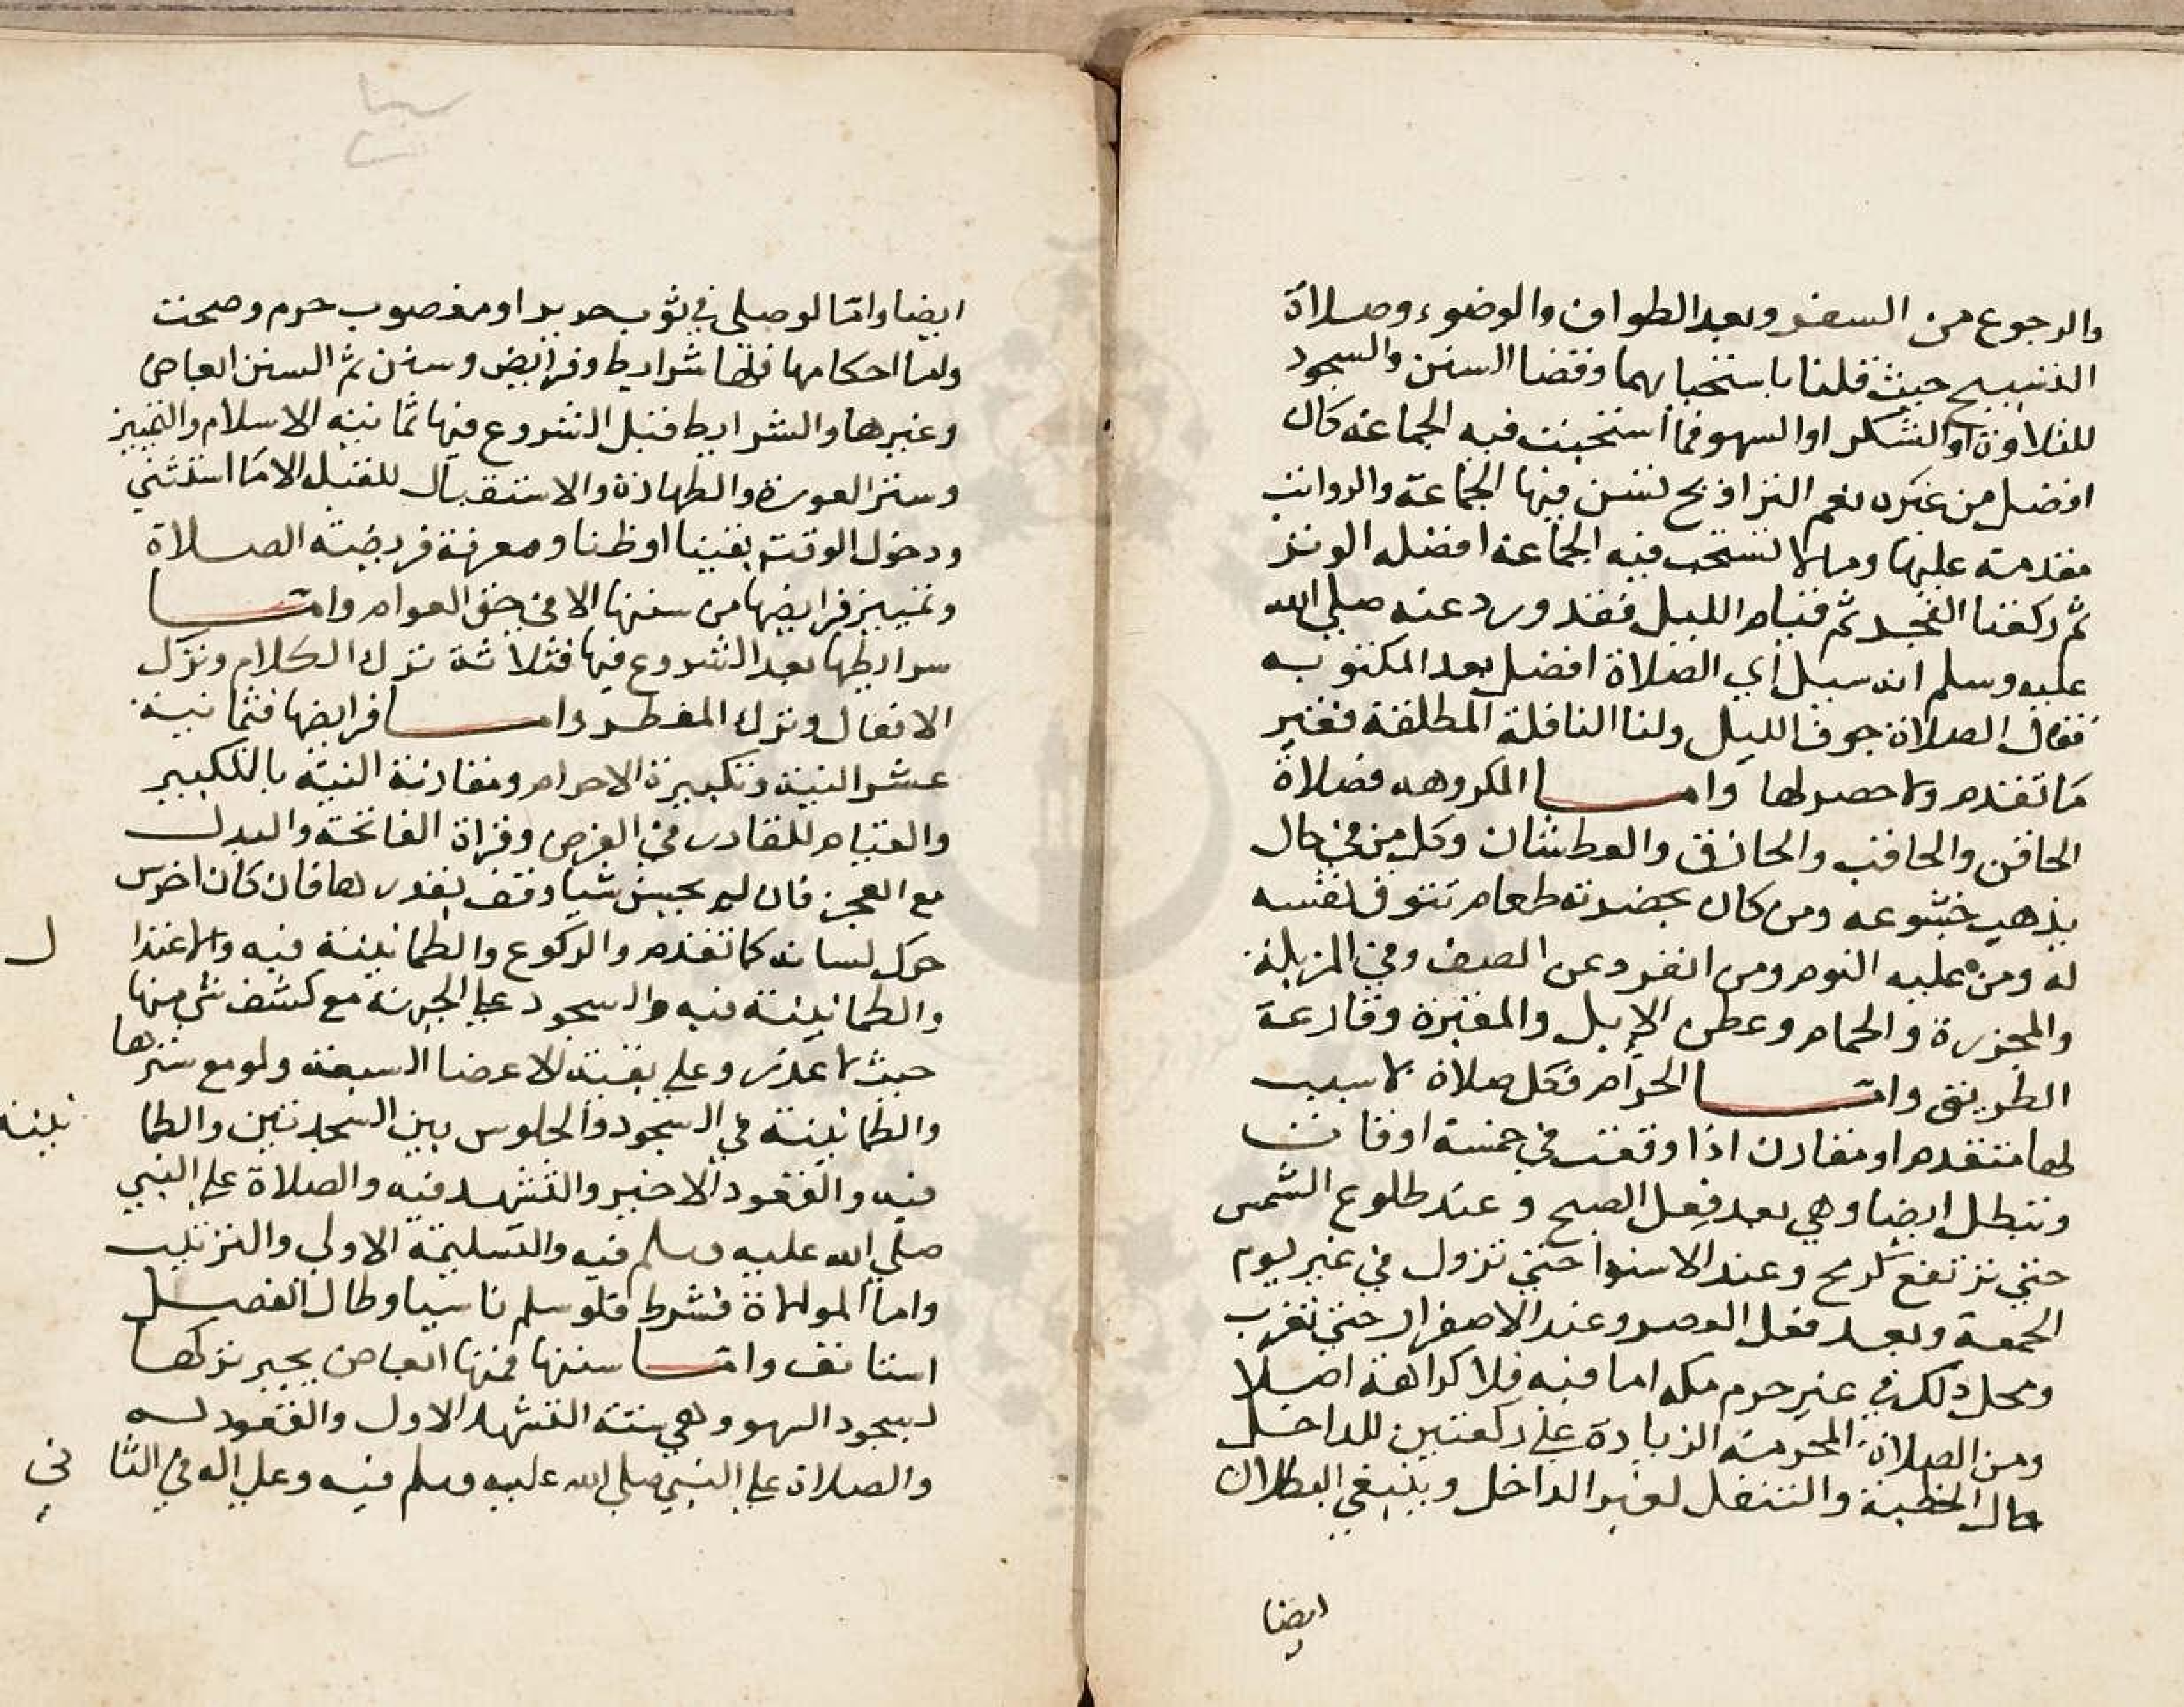 والرجوع من السفر وبعد الطواف والوضوء وصلاة
التسبيح حيث قلنا باستحبابهما وقضا السنن والسجود
للتلاوة او الشكر او السهو فما استحبت فيه الجماعة كان
افضل من غيره نعم التراويح تسن فيها الجماعة والرواتب
مقدمة عليها وما لا تستحب فيه الجماعة افضله الوتر
ثم ركعتا الفجر ثم قيام الليل فقد ورد عنه صلي الله
عليه وسلم انه سيل اي الصلاة افضل بعد المكتوبه
فقال الصلاة جوف الليل ولنا النافلة المطلقة فغير
ما تقدم ولا حصر لها واما المكروهه فصلاة
الحاقن والحاقب والحازق والعطشان وكل من في حال
يذهب خشوعه ومن كان بحضرته طعام تتوق نفسه
له ومن عليه النوم ومن انفرد عن الصف وفي المزبلة
والمجزرة والحمام وعطن الابل والمقبرة وقارعة
الطريق واما الحرام فكل صلاة لا سبب
لها متقدم او مقارن اذا وقعت في خمسة اوقات
وتبطل ايضا وهي بعد فعل الصبح وعند طلوع الشمس
حتي ترتفع كرمح وعند الاستوا حتي تزول في غير يوم
الجمعة وبعد فعل العصر وعند الاصفرار حتي تغرب
ومحل ذلك في غير حرم مكه اما فيه فلا كراهة اصلا
ومن الصلاة المحرمة الزيادة علي ركعتين للداخل
حال الخطبة والتنفل لغير الداخل وينبغي البطلان
ايضا
ايضا واما لو صلي في ثوب حرير او مغصوب حرم وصحت
واما احكامها فلها شرايط وفرايض وسنن ثم السنن ابعاض
وغيرها والشرايط قبل الشروع فيها ثمانية الاسلام والتمييز
وستر العورة والطهارة والاستقبال للقبله الا ما استثني
ودخول الوقت يقينا او ظنا ومعرفة فريضة الصلاة
وتمييز فرايضها من سننها الا في حق العوام واما
شرايطها بعد الشروع فيها فثلاثة ترك الكلام وترك
الافعال وترك المفطر واما فرايضها فثمانية
عشر النية وتكبيرة الاحرام ومقارنة النية بالتكبير
والقيام للقادر في الفرض وقراة الفاتحة والبدل
مع العجز فان لم يحسن شيا وقف بقدرها فان كان اخرس
حرك لسانه كما تقدم والركوع والطمانينة فيه والاعتدا ل
والطمانينة فيه والسجود علي الجبهة مع كشف شي منها
حيث لا عذر وعلي بقية الاعضا السبعة ولو مع سترها
والطمانينة في السجود والجلوس بين السجدتين والطما نينة
فيه والقعود الاخير والتشهد فيه والصلاة علي النبي
صلي الله عليه وسلم فيه والتسليمة الاولي والترتيب
واما الموالاة فشرط فلو سلم ناسيا وطال الفصل
استانف واما سننها فمنها ابعاض يجبر تركها
بسجود السهو وهي ستة التشهد الاول والقعود له
والصلاة علي النبي صلي الله عليه وسلم فيه وعلي اله في الثا ني